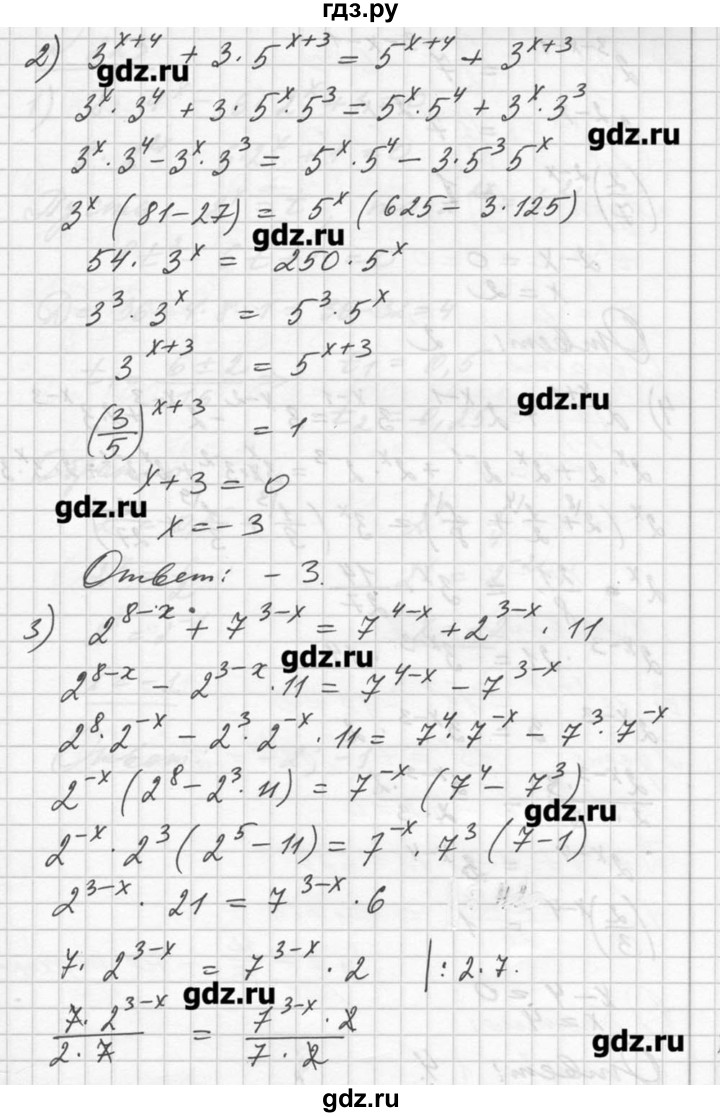 гдз.ру
2) 3^{x+4} + 3·5^{x+3} = 5^{x+4} + 3^{x+3}
gdz.ru
3^x·3^4 + 3·5^x·5^3 = 5^x·5^4 + 3^x·3^3
gdz.ru
3^x·3^4 - 3^x·3^3 = 5^x·5^4 - 3·5^3 5^x
3^x (81-27) = 5^x (625 - 3·125)
gdz.ru
54·3^x = 250·5^x
3^3·3^x = 5^3·5^x
3^{x+3} = 5^{x+3}
gdz.ru
(3/5)^{x+3} = 1
x+3 = 0
gdz.ru
x = -3
Ответ: -3.
3) 2^{8-x} + 7^{3-x} = 7^{4-x} + 2^{3-x}·11
gdz.ru
2^{8-x} - 2^{3-x}·11 = 7^{4-x} - 7^{3-x}
2^8·2^{-x} - 2^3·2^{-x}·11 = 7^4·7^{-x} - 7^3·7^{-x}
2^{-x} (2^8 - 2^3·11) = 7^{-x} (7^4 - 7^3)
gdz.ru
2^{-x}·2^3 (2^5 - 11) = 7^{-x}·7^3 (7-1)
2^{3-x}·21 = 7^{3-x}·6
7·2^{3-x} = 7^{3-x}·2 |:2·7.
gdz.ru
7·2^{3-x} / 2·7 = 7^{3-x}·2 / 7·2
gdz.ru
gdz.ru